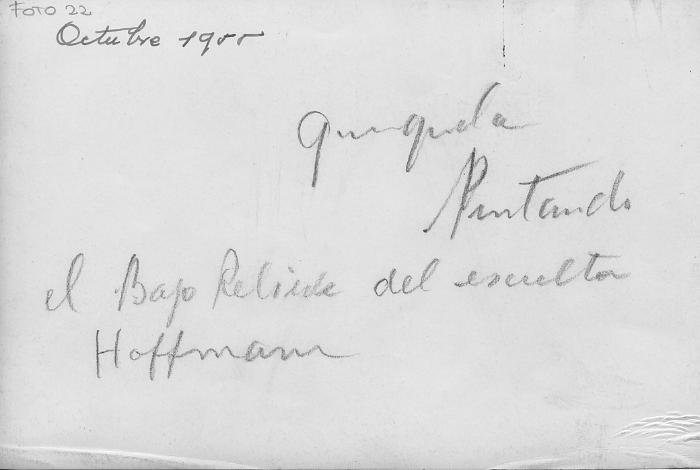 FOTO 22
Octubre 1955
Quinquela
Pintando
el Bajo Relieve del escultor
Hoffmann